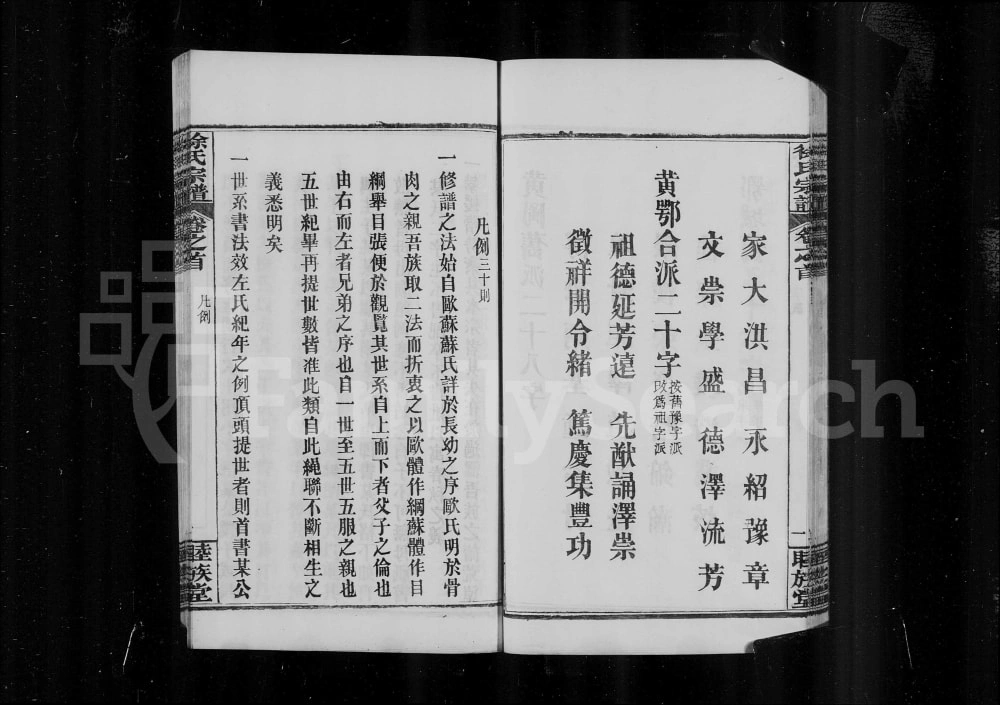 徐氏宗譜 卷之首
一 睦族堂
家大洪昌永紹豫章
文崇學盛德澤流芳
黃鄂合派二十字 按舊豫字派
改爲祖字派
祖德延芳遠 先猷誦澤崇
徵祥開令緒 篤慶集豐功
凡例三十則
一修譜之法始自歐蘇蘇氏詳於長幼之序歐氏明於骨
肉之親吾族取二法而折衷之以歐體作綱蘇體作目
綱舉目張便於觀覽其世系自上而下者父子之倫也
由右而左者兄弟之序也自一世至五世五服之親也
五世紀畢再提世數皆准此類自此繩聯不斷相生之
義悉明矣
一世系書法效左氏紀年之例頂頭提世者則首書某公
徐氏宗譜 卷之首 凡例
睦族堂
FamilySearch